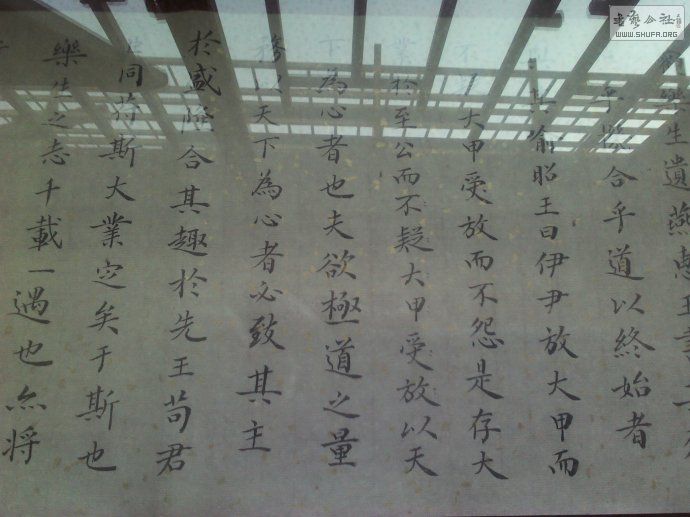 樂生遺燕惠王書
乎㡬合乎道以終始者
其喻昭王曰伊尹放大甲而
不大甲受放而不怨是存大
業於至公而不疑大甲受放以天
下為心者也夫欲極道之量
務以天下為心者必致其主
於盛隆合其趣於先王苟君
同苻斯大業定矣于斯也
樂生之志千載一遇也亦將
書艺公社
WWW.SHUFA.ORG